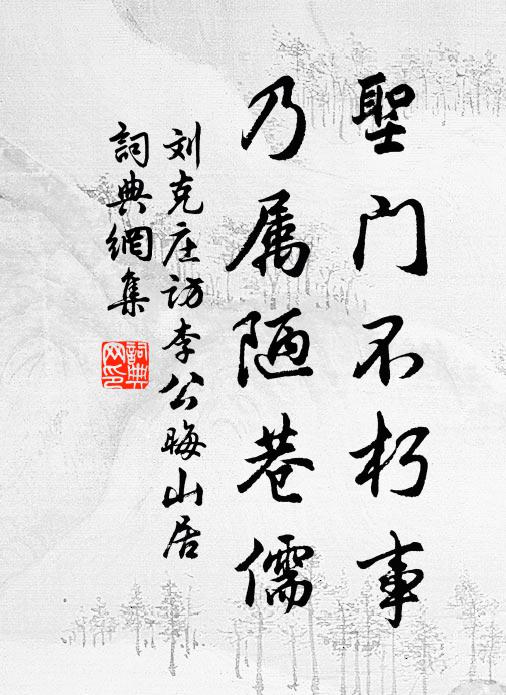 聖门不朽事
乃属陋巷儒
刘克庄访李公晦山居
詞典網集
詞典网印